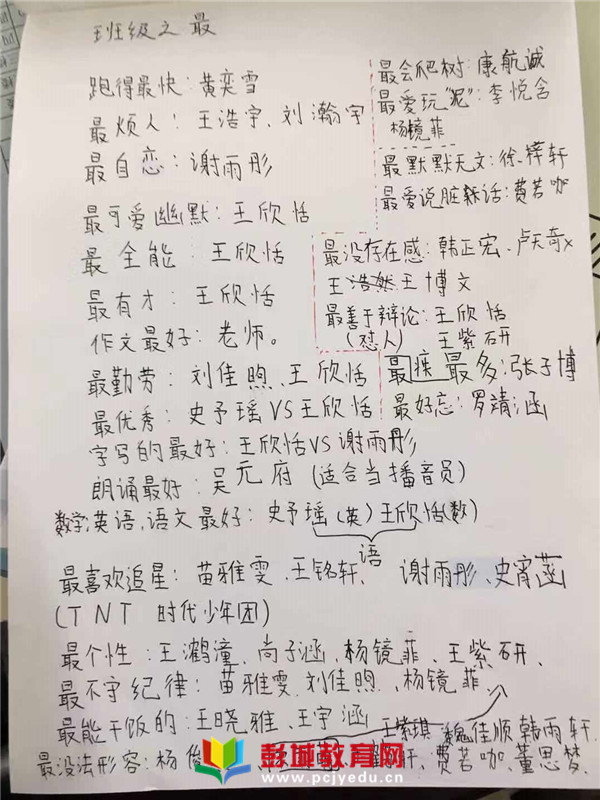 班级之最
跑得最快：黄奕雪
最烦人：王浩宇、刘瀚宇
最自恋：谢雨彤
最可爱幽默：王欣恬
最全能：王欣恬
最有才：王欣恬
作文最好：老师。
最会爬树：康航诚
最爱玩“泥”：李悦含
杨镜菲
最默默无文：徐梓轩
最爱说脏话：费若咖
最没存在感：韩正宏、卢天奇x
王博文
最善于辩论：王欣恬
(怼人) 王紫研
最勤劳：刘佳煦、王欣恬
最疾最多：张子博
最优秀：史予瑶VS王欣恬
最好忘：罗靖涵
字写的最好：王欣恬VS谢雨彤
朗诵最好：吴元府(适合当播音员)
数学，英语，语文最好：史予瑶(英)王欣恬(数)
语
最喜欢追星：苗雅雯、王铭轩、谢雨彤、史宵菡
(TNT 时代少年团)
最个性：王鹓潼、尚子涵、杨镜菲、王紫研、
最不守纪律：苗雅雯、刘佳煦、杨镜菲
最能干饭的：王晓雅、王宇涵、王紫琪 魏佳顺韩雨轩
最没法形容：杨俊 轩、费若咖、董思梦、
彭城教育网
www.pcjyedu.cn